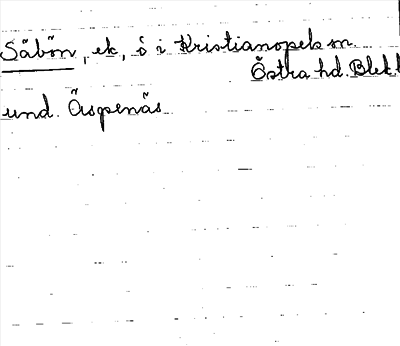 Säbön, ek, ö i Kristianopels sn.
Östra hd. Blek.l
und. Äspenäs